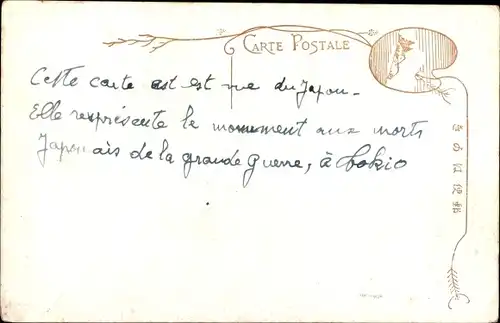 CARTE POSTALE
Cette carte ast est vue du Japon-
Elle représente le monument aux morts
Japonais de la grande Guerre, à Tokio